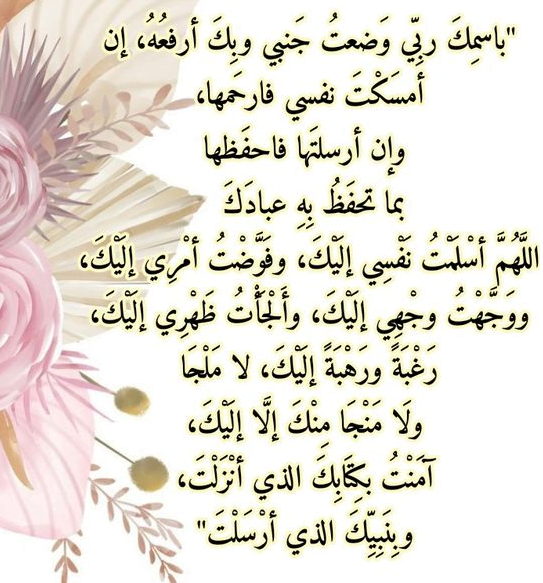 "باسمِكَ ربِّي وَضعتُ جَنبي وبِكَ أرفعُهُ، إن
أمسَكْتَ نفسي فارحَمها،
وإن أرسلتَها فاحفَظها
بما تحفَظُ بِهِ عبادَكَ
اللَّهُمَّ أسْلَمْتُ نَفْسِي إلَيْكَ، وفَوَّضْتُ أمْرِي إلَيْكَ،
ووَجَّهْتُ وجْهِي إلَيْكَ، وأَلْجَأْتُ ظَهْرِي إلَيْكَ،
رَغْبَةً ورَهْبَةً إلَيْكَ، لا مَلْجَا
ولَا مَنْجَا مِنْكَ إلَّا إلَيْكَ،
آمَنْتُ بكِتَابِكَ الذي أنْزَلْتَ،
وبِنَبِيِّكَ الذي أرْسَلْتَ"